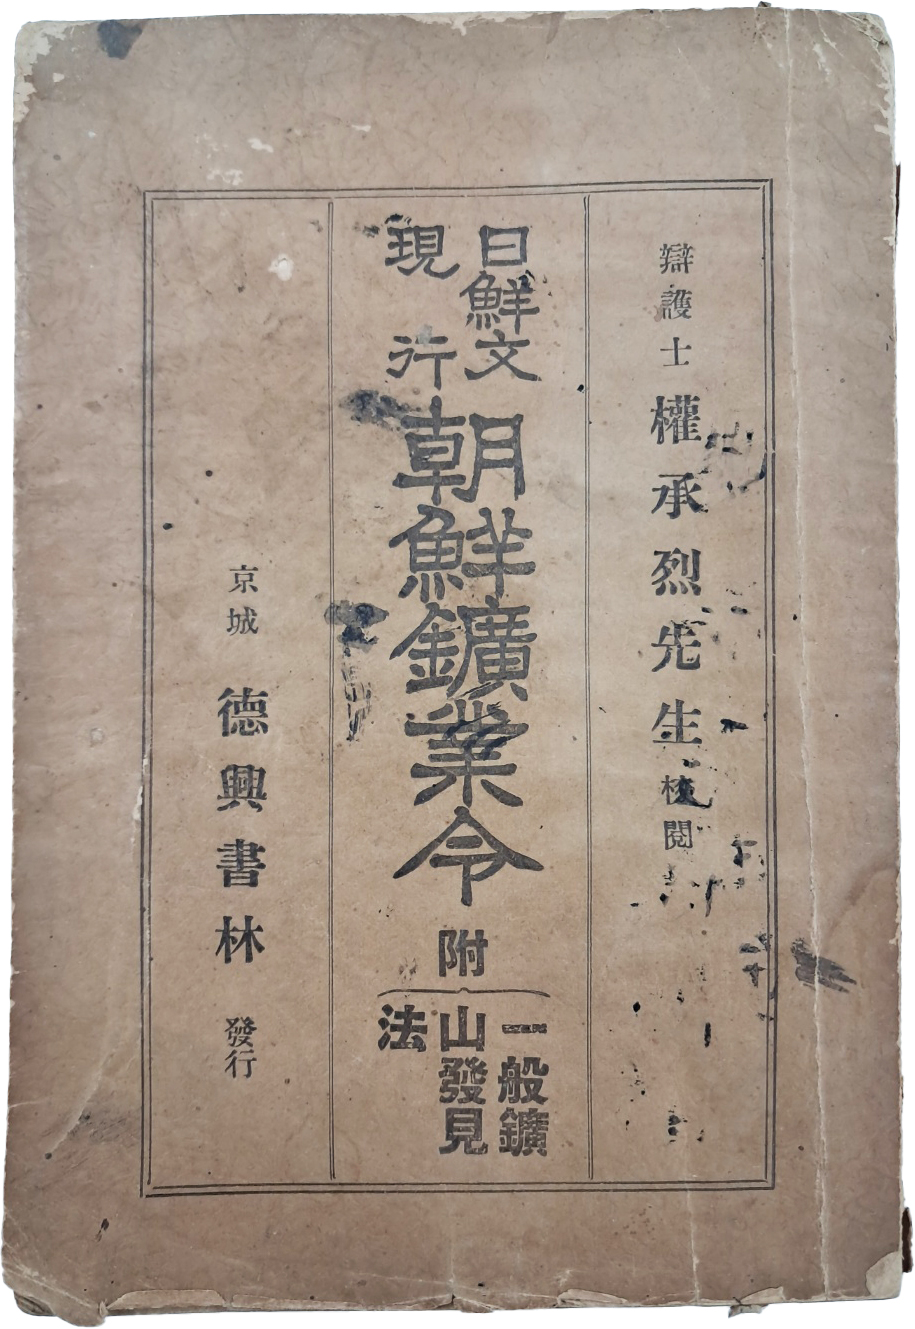 辯護士 權承烈先生 校閱
日鮮文
現行
朝鮮鑛業令
附
一般鑛
山發見
法
京城 德興書林 發行